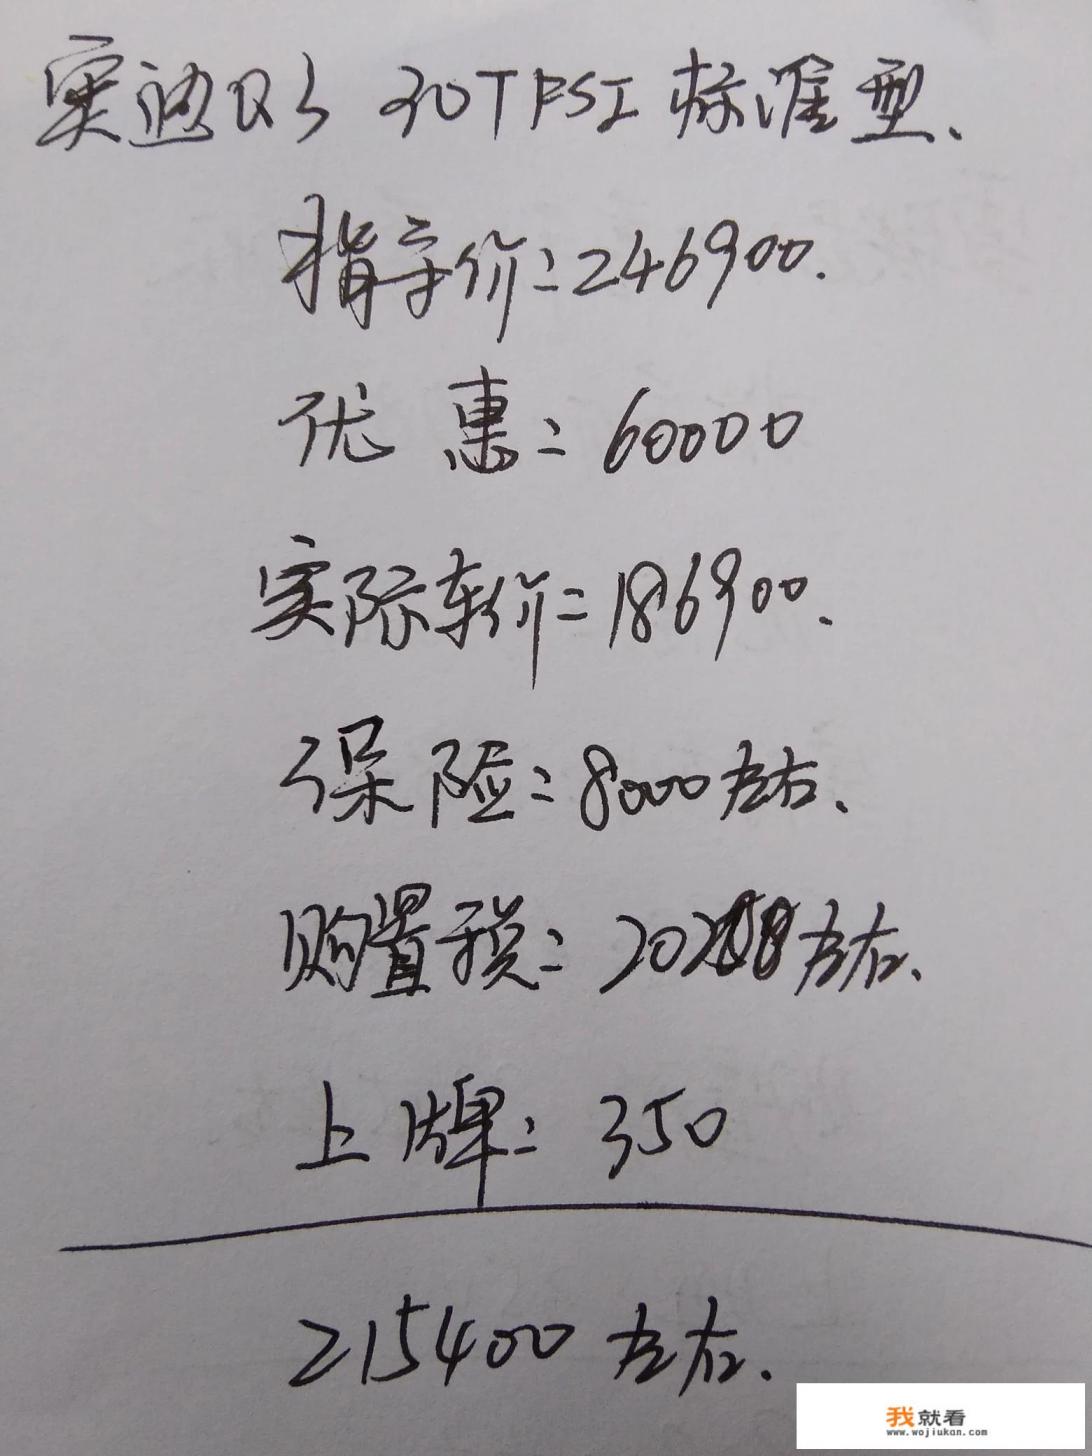 奥迪Q3 30TFSI 标准型.
指导价=246900.
优惠=60000
实际车价=186900.
保险=8000左右.
购置税=左右.
上牌=350
215400左右.
我就看
www.wojiukan.com